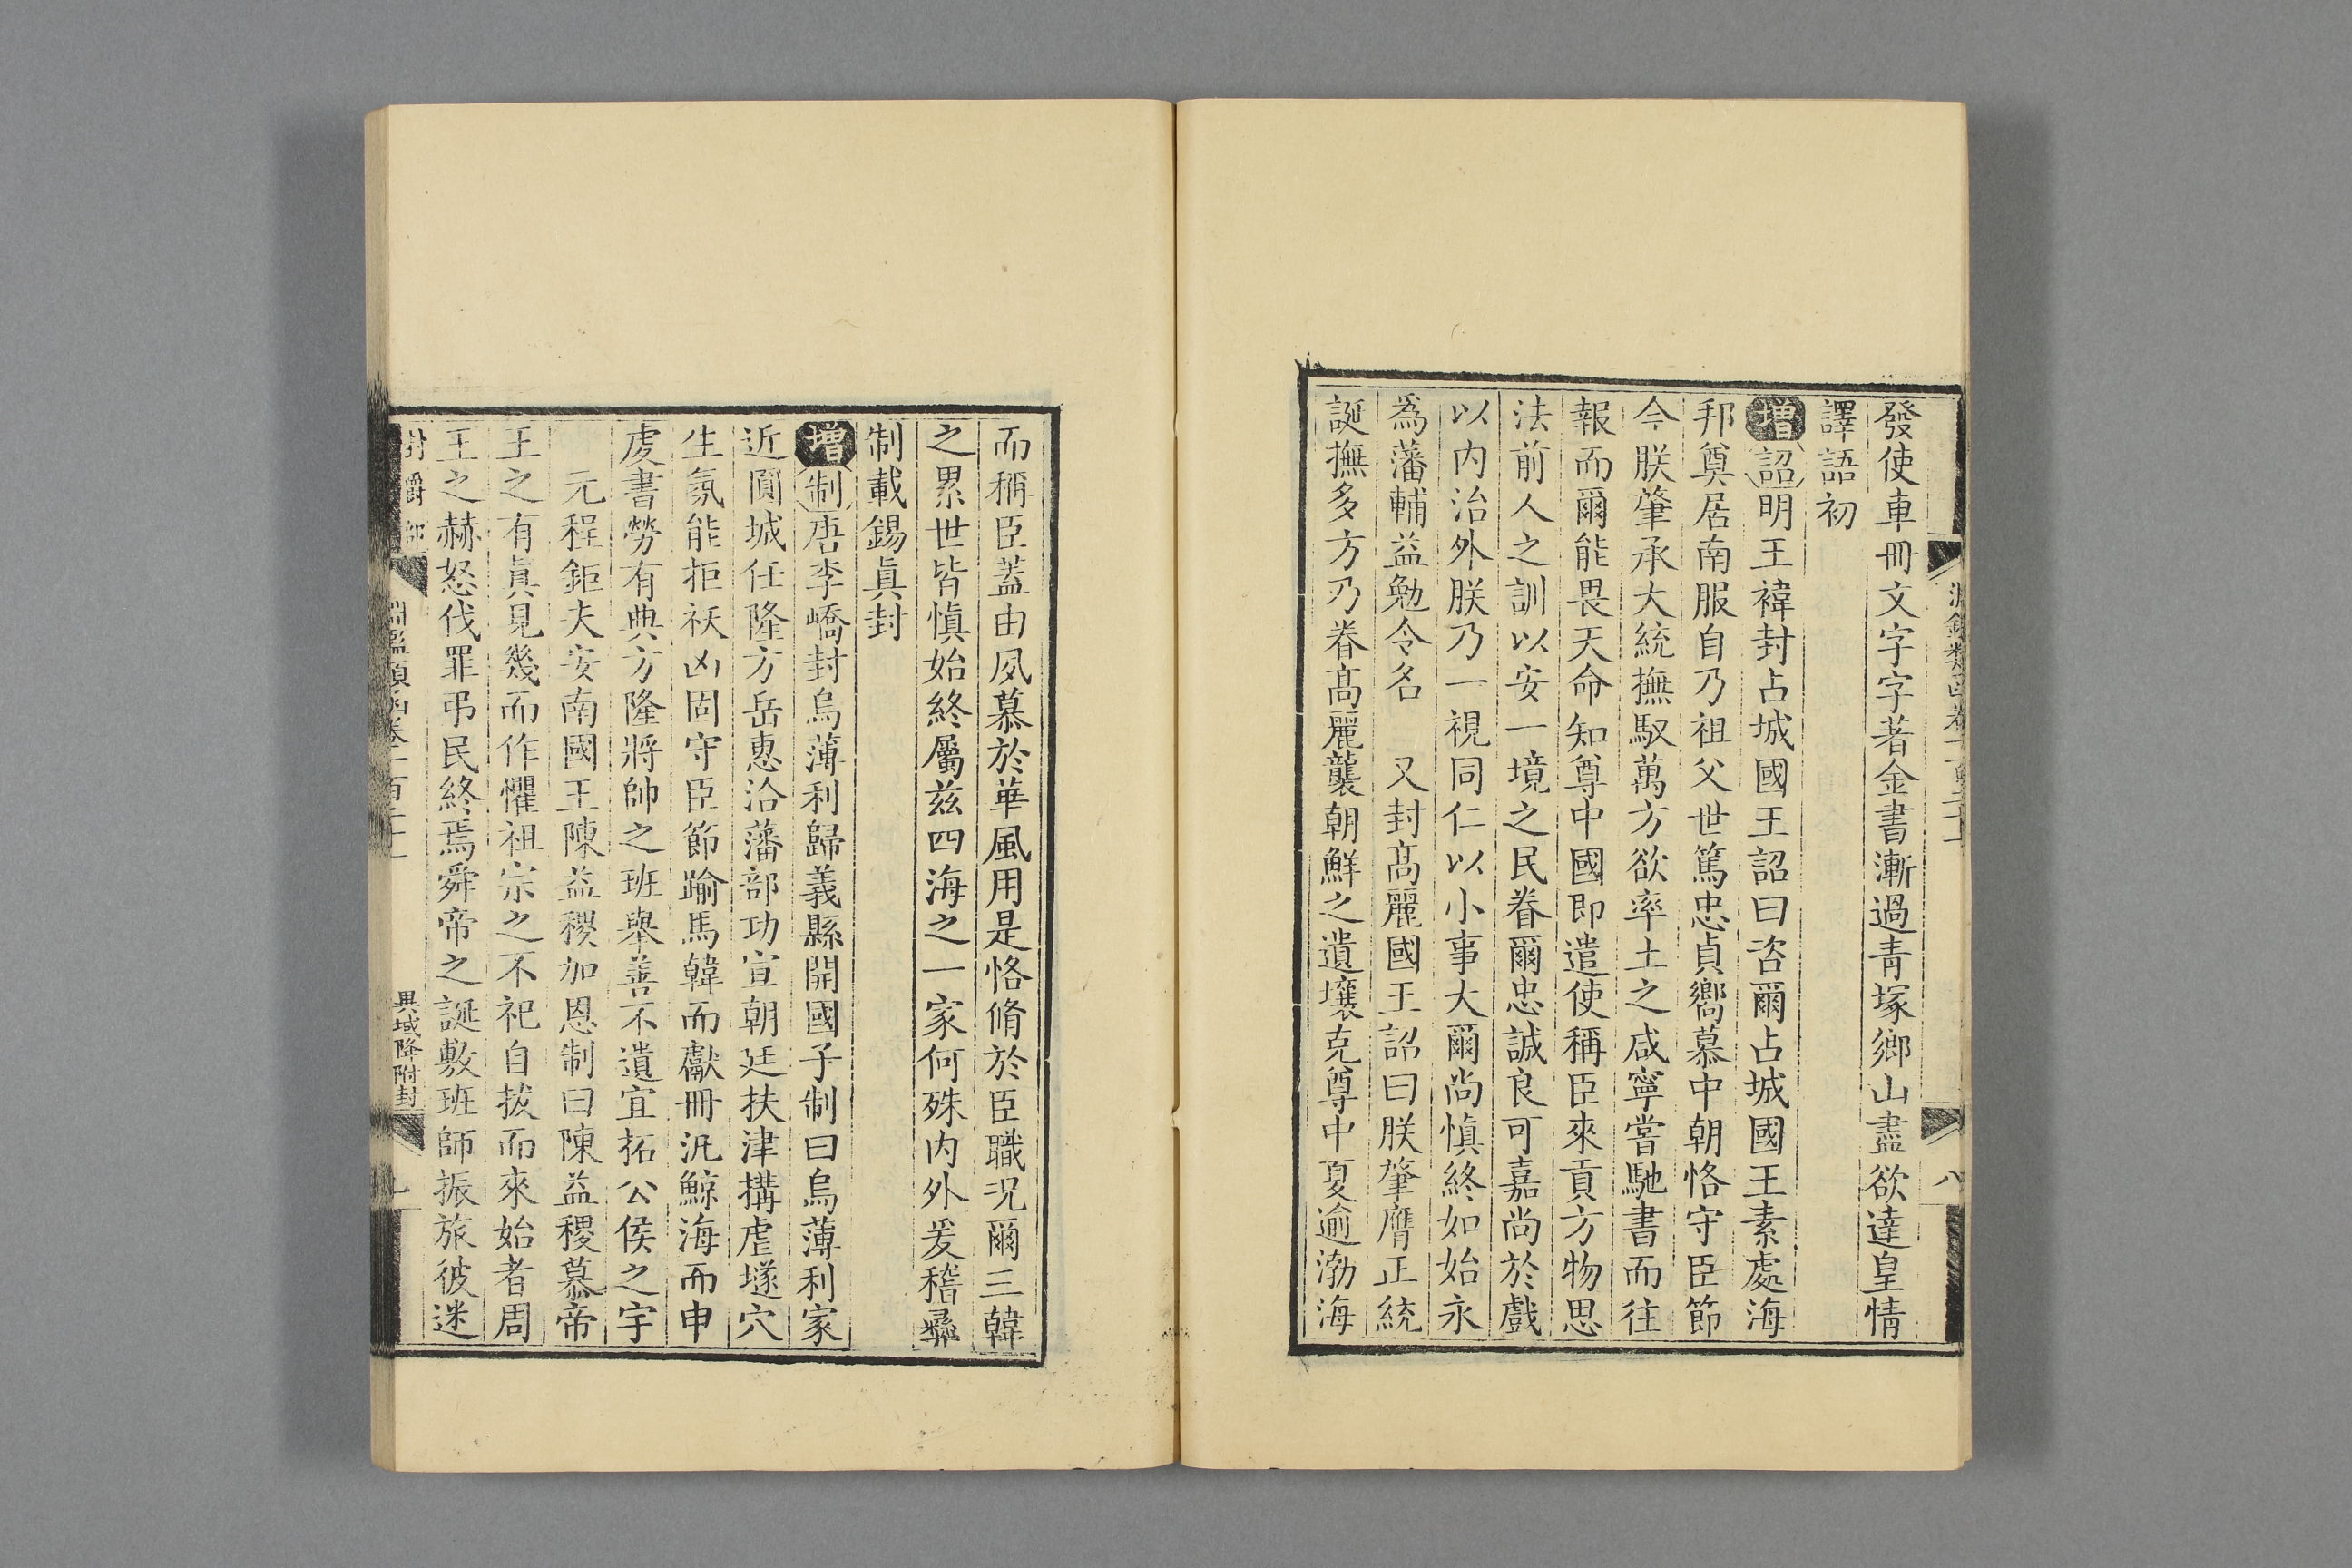 發使車冊文字字著金書漸過青塚鄉山盡欲達皇情
譯語初
增詔明王褘封占城國王詔曰咨爾占城國王素處海
邦奠居南服自乃祖父世篤忠貞嚮慕中朝恪守臣節
今朕肇承大統撫馭萬方欲率土之咸寧嘗馳書而往
報而爾能畏天命知尊中國即遣使稱臣來貢方物思
法前人之訓以安一境之民眷爾忠誠良可嘉尚於戲
以内治外朕乃一視同仁以小事大爾尚慎終如始永
為藩輔益勉令名 又封髙麗國王詔曰朕肇膺正統
誕撫多方乃眷髙麗襲朝鮮之遺壤克尊中夏逾渤海
而稱臣蓋由夙慕於華風用是恪脩於臣職況爾三韓
之累世皆慎始終屬兹四海之一家何殊内外爰稽彞
制載錫眞封
增制唐李嶠封烏薄利歸義縣開國子制曰烏薄利家
近圓城任隆方岳惠洽藩部功宣朝廷扶津搆虐墜穴
生氛能拒祅凶固守臣節踰馬韓而獻冊汎鯨海而申
虔書勞有典方隆將帥之班舉善不遺宜拓公侯之宇
元程鉅夫安南國王陳益稷加恩制曰陳益稷慕帝
王之有眞見幾而作懼祖宗之不祀自拔而來始者周
王之赫怒伐罪弔民終焉舜帝之誕敷班師振旅彼迷
封爵部 淵鑑類函卷一百二十一 異域降附封